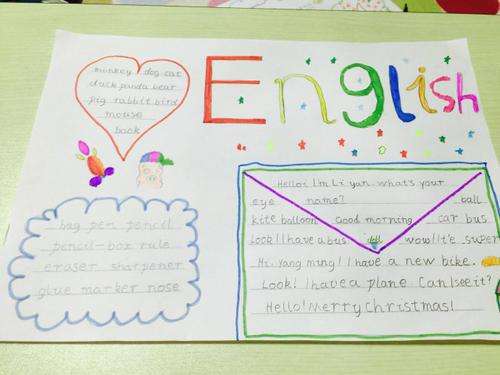 English
monkey dog cat
duck panda bear
pig rabbit bird
mouse
bag pen pencil
pencil-box rule
eraser sharpener
glue marker nose
Hello! I'm Li yan. what's your
eye name? ball
kite balloon Good morning car bus
Look! I have a bus. wow! It's super
Hi. Yang ming! I have a new bike.
Look! I have a plane. Can I see it?
Hello! Merry Christmas!